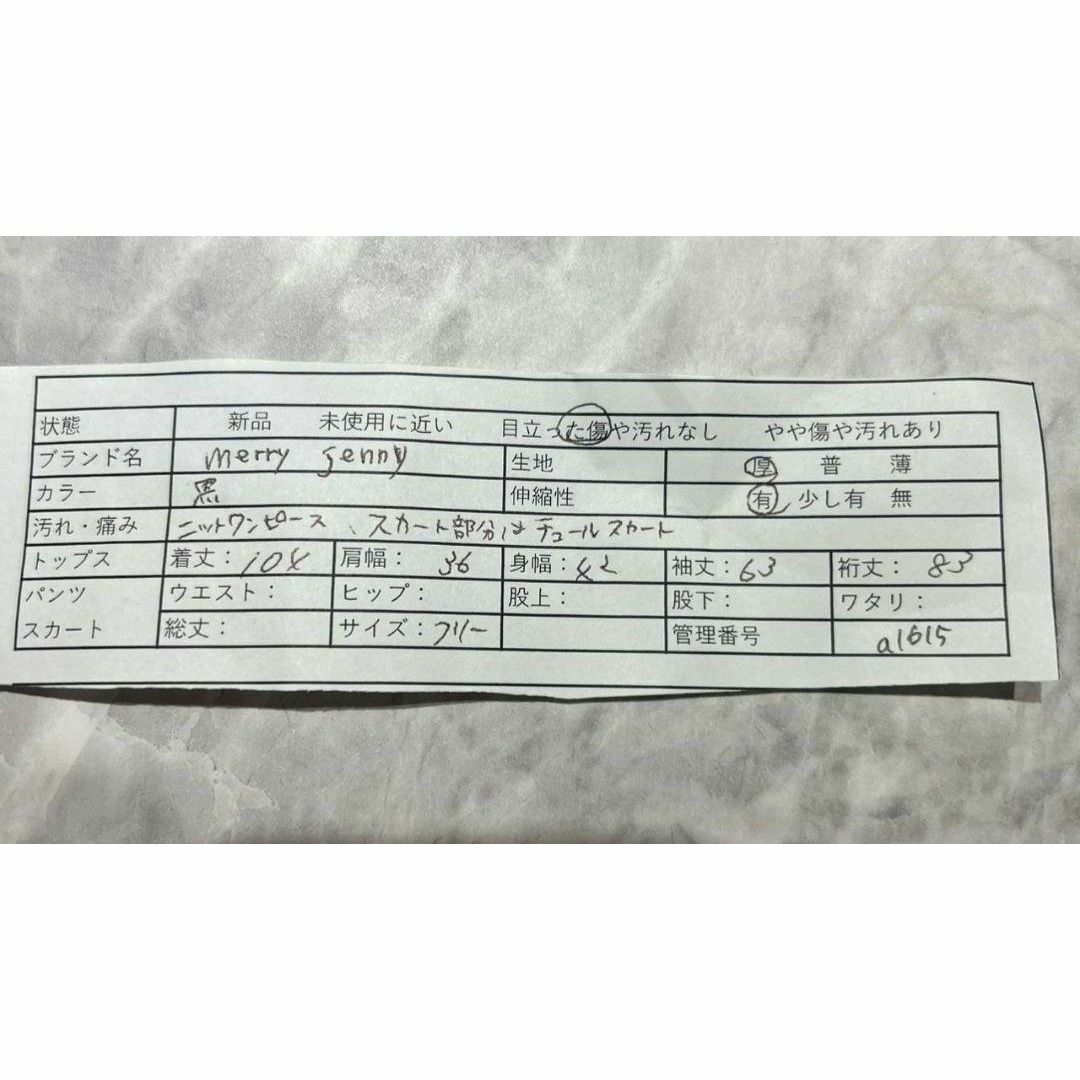 状態 新品 未使用に近い 目立った傷や汚れなし やや傷や汚れあり
ブランド名 merry jenny 生地 厚 普 薄
カラー 黒 伸縮性 有 少し有 無
汚れ・痛み ニットワンピース、スカート部分はチュールスカート
トップス 着丈：104 肩幅：36 身幅：42 袖丈：63 裄丈：83
パンツ ウエスト： ヒップ： 股上： 股下： ワタリ：
スカート 総丈： サイズ：フリー 管理番号 a1615